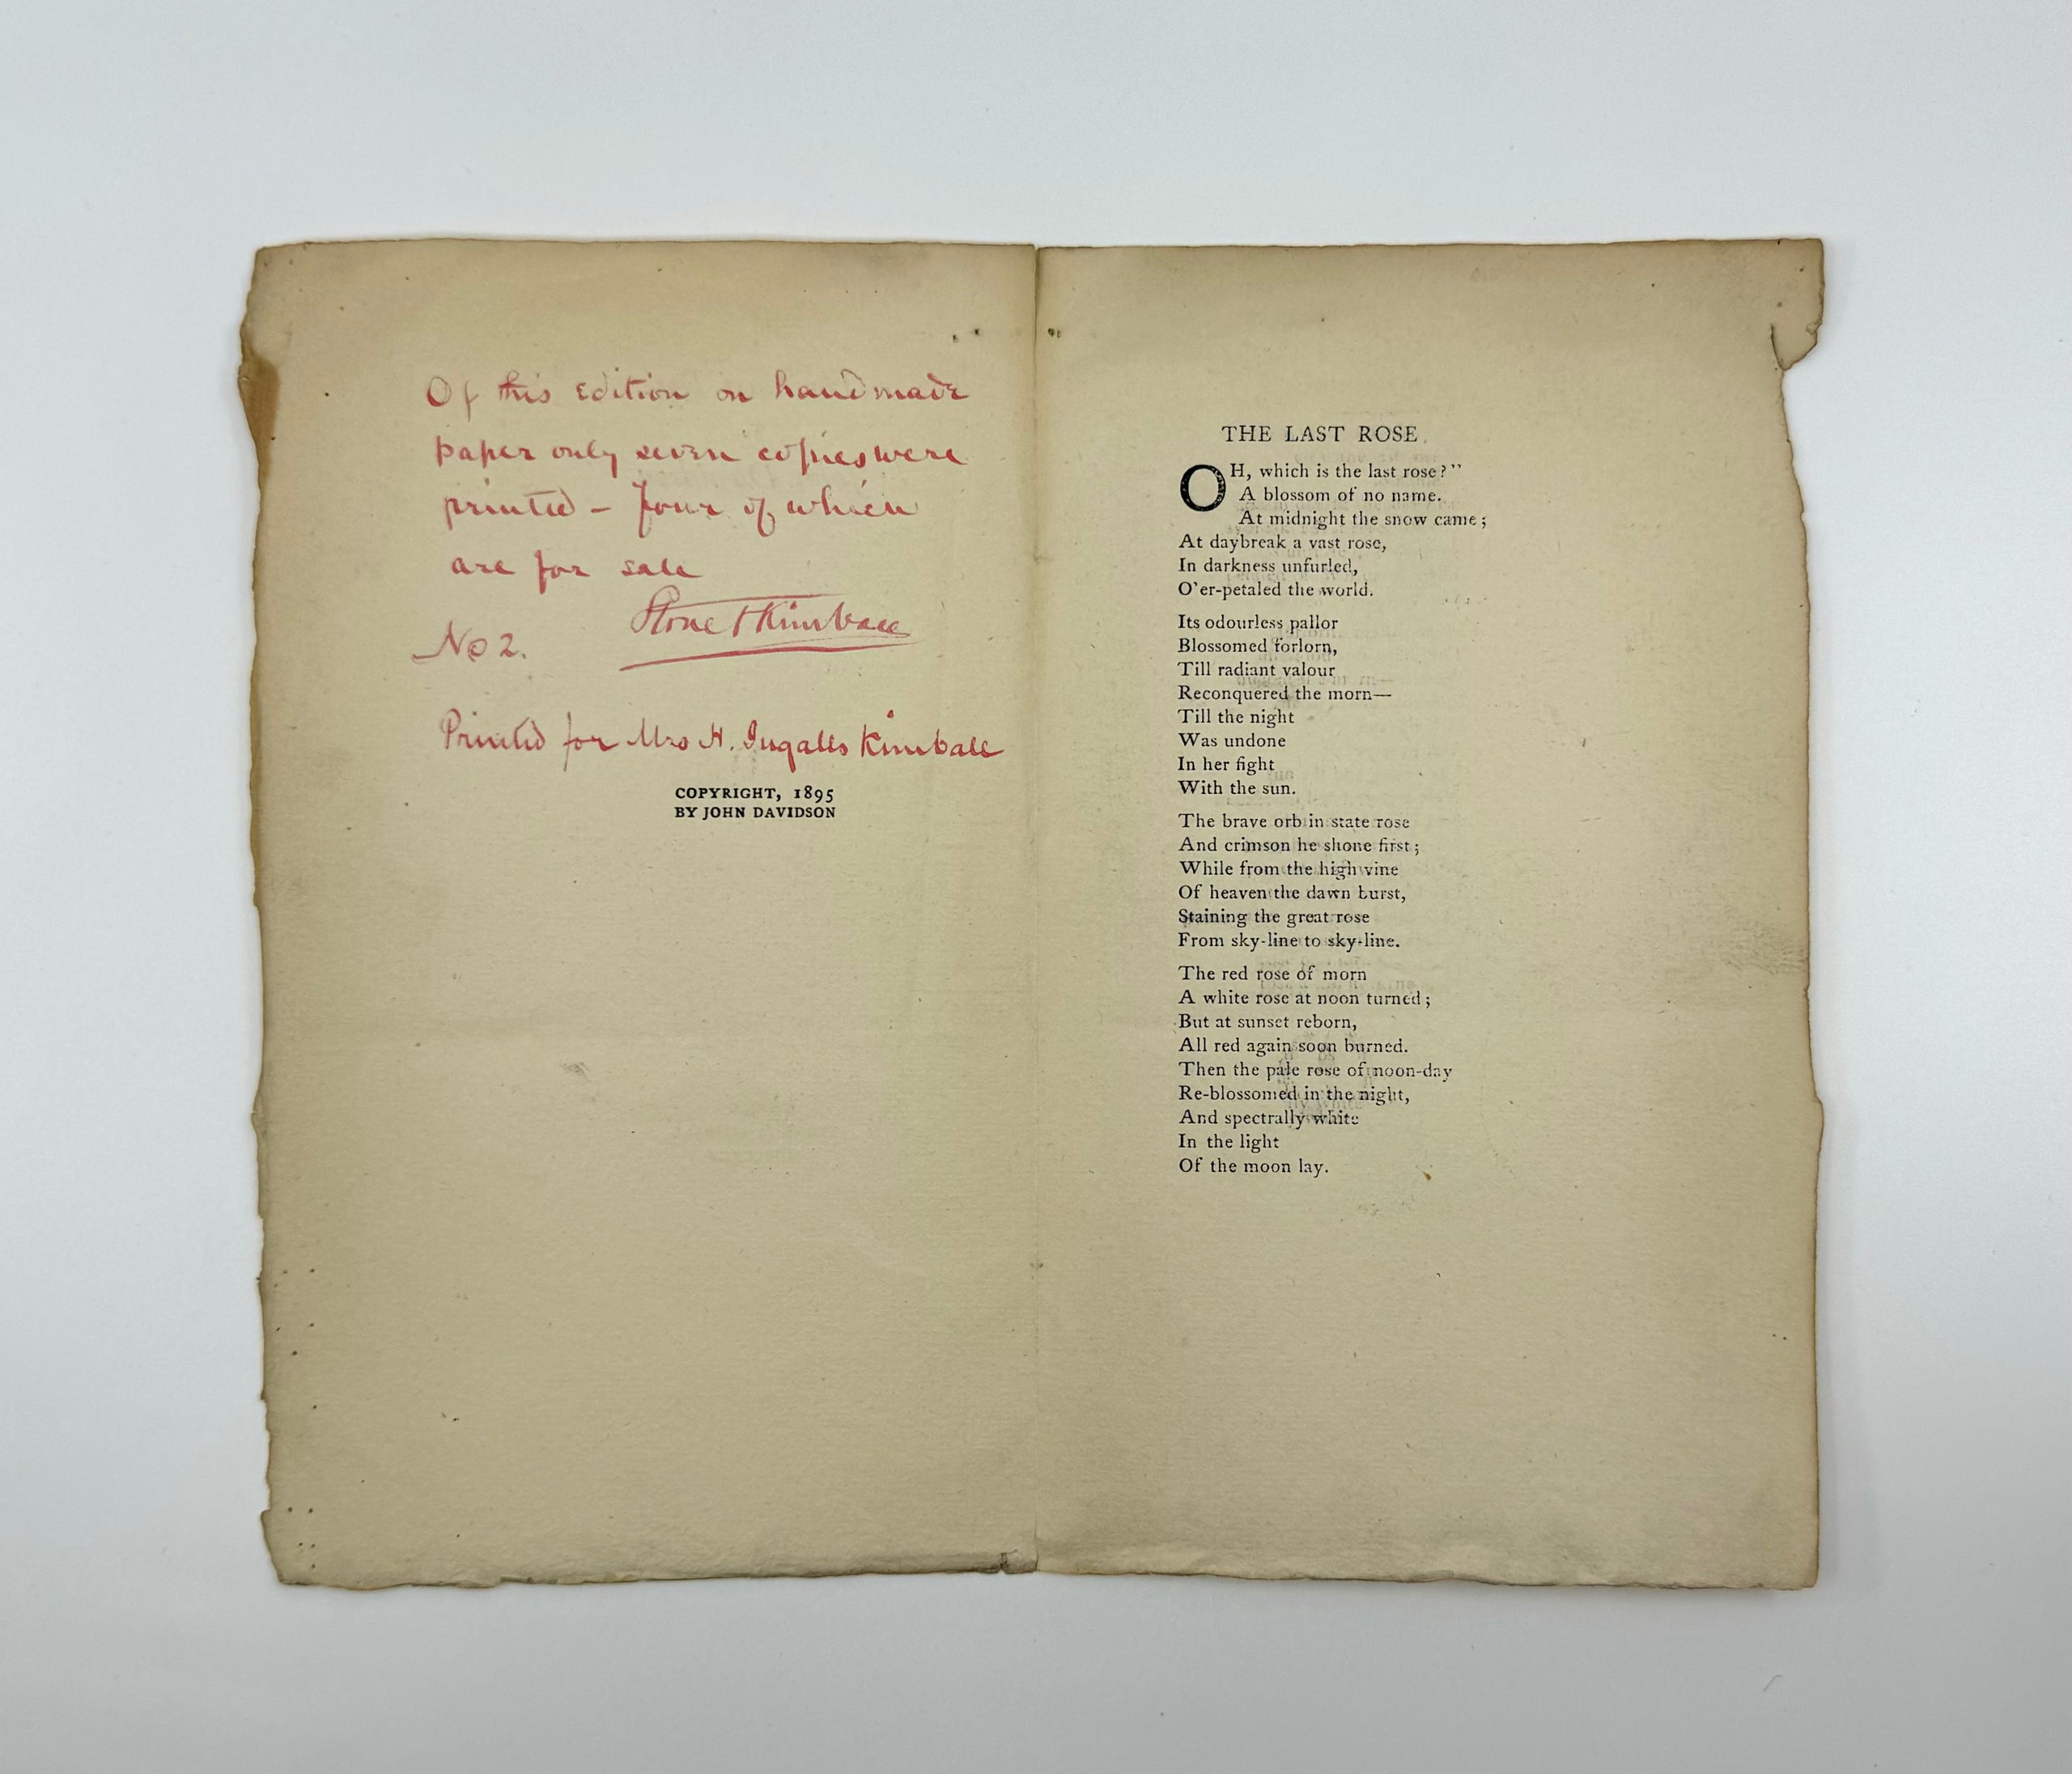 Of this edition on handmade
paper only seven copies were
printed – four of which
are for sale
Stone & Kimball
No 2.
Printed for Mrs H. Ingalls Kimball
COPYRIGHT, 1895
BY JOHN DAVIDSON
THE LAST ROSE.
OH, which is the last rose?”
A blossom of no name.
At midnight the snow came;
At daybreak a vast rose,
In darkness unfurled,
O’er-petaled the world.
Its odourless pallor
Blossomed forlorn,
Till radiant valour
Reconquered the morn—
Till the night
Was undone
In her fight
With the sun.
The brave orb in state rose
And crimson he shone first;
While from the high vine
Of heaven the dawn burst,
Staining the great rose
From sky-line to sky-line.
The red rose of morn
A white rose at noon turned;
But at sunset reborn,
All red again soon burned.
Then the pale rose of noon-day
Re-blossomed in the night,
And spectrally white
In the light
Of the moon lay.